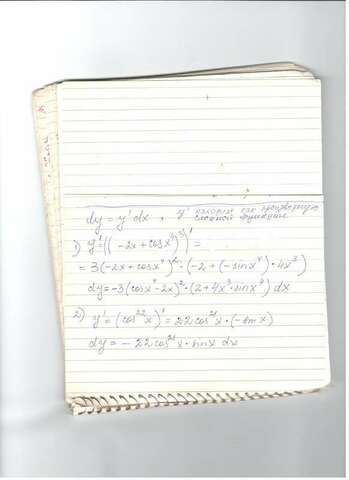 dy = y' dx , y' находим как производную
сложной функции
1) y' = ((-2x + cos x⁴)³)' =
= 3(-2x + cos x⁴)² · (-2 + (-sin x⁴) · 4x³)
dy = -3(cos x⁴ - 2x)² · (2 + 4x³ · sin x⁴) dx
2) y' = (cos²² x)' = 22 cos²¹ x · (-sin x)
dy = - 22 cos²¹ x · sin x dx